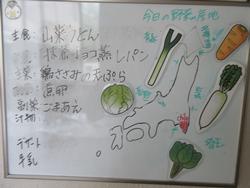 今日の野菜の産地
主食 山菜うどん
抹茶チョコ蒸しパン
主菜 鶏ささみの天ぷら
煮卵
副菜 ごまあえ
汁物
デザート
牛乳
北海道
埼玉